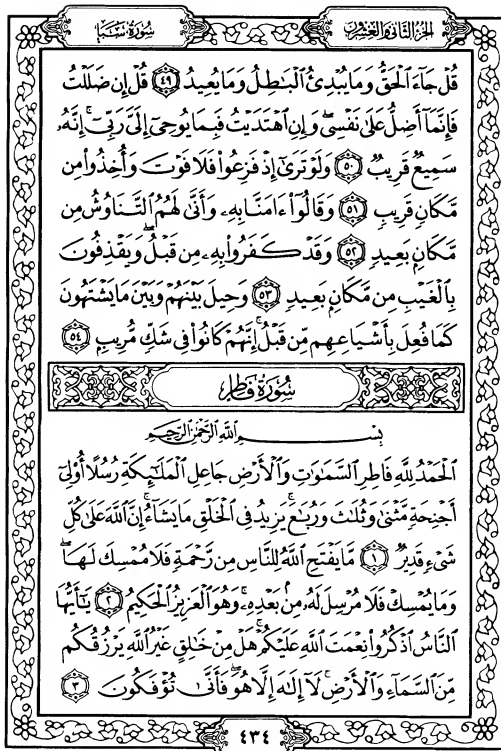 الجزء الثاني والعشرون
سورة سبأ
قُلْ جَآءَ ٱلْحَقُّ وَمَا يُبْدِئُ ٱلْبَٰطِلُ وَمَا يُعِيدُ ٤٩ قُلْ إِن ضَلَلْتُ
فَإِنَّمَآ أَضِلُّ عَلَىٰ نَفْسِىۖ وَإِنِ ٱهْتَدَيْتُ فَبِمَا يُوحِىٓ إِلَىَّ رَبِّىٓۚ إِنَّهُۥ
سَمِيعٌ قَرِيبٌ ٥٠ وَلَوْ تَرَىٰٓ إِذْ فَزِعُوا۟ فَلَا فَوْتَ وَأُخِذُوا۟ مِن
مَّكَانٍ قَرِيبٍ ٥١ وَقَالُوٓا۟ ءَامَنَّا بِهِۦ وَأَنَّىٰ لَهُمُ ٱلتَّنَاوُشُ مِن
مَّكَانٍۭ بَعِيدٍ ٥٢ وَقَدْ كَفَرُوا۟ بِهِۦ مِن قَبْلُۖ وَيَقْذِفُونَ
بِٱلْغَيْبِ مِن مَّكَانٍۭ بَعِيدٍ ٥٣ وَحِيلَ بَيْنَهُمْ وَبَيْنَ مَا يَشْتَهُونَ
كَمَا فُعِلَ بِأَشْيَاعِهِم مِّن قَبْلُۚ إِنَّهُمْ كَانُوا۟ فِى شَكٍّ مُّرِيبٍۭ ٥٤
سُورَةُ فَاطِرٍ
بِسْمِ ٱللَّهِ ٱلرَّحْمَٰنِ ٱلرَّحِيمِ
ٱلْحَمْدُ لِلَّهِ فَاطِرِ ٱلسَّمَٰوَٰتِ وَٱلْأَرْضِ جَاعِلِ ٱلْمَلَٰٓئِكَةِ رُسُلًا أُو۟لِىٓ
أَجْنِحَةٍ مَّثْنَىٰ وَثُلَٰثَ وَرُبَٰعَۚ يَزِيدُ فِى ٱلْخَلْقِ مَا يَشَآءُۚ إِنَّ ٱللَّهَ عَلَىٰ كُلِّ
شَىْءٍ قَدِيرٌ ١ مَّا يَفْتَحِ ٱللَّهُ لِلنَّاسِ مِن رَّحْمَةٍ فَلَا مُمْسِكَ لَهَاۖ
وَمَا يُمْسِكْ فَلَا مُرْسِلَ لَهُۥ مِنۢ بَعْدِهِۦۚ وَهُوَ ٱلْعَزِيزُ ٱلْحَكِيمُ ٢ يَٰٓأَيُّهَا
ٱلنَّاسُ ٱذْكُرُوا۟ نِعْمَتَ ٱللَّهِ عَلَيْكُمْۚ هَلْ مِنْ خَٰلِقٍ غَيْرُ ٱللَّهِ يَرْزُقُكُم
مِّنَ ٱلسَّمَآءِ وَٱلْأَرْضِۚ لَآ إِلَٰهَ إِلَّا هُوَۖ فَأَنَّىٰ تُؤْفَكُونَ ٣
٤٣٤